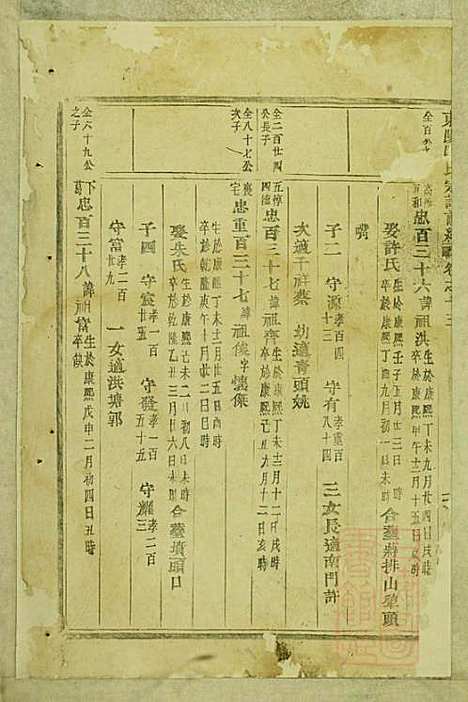 忠百三十六 諱祖洪 生於康熙丁未九月廿四日戌時 卒於康熙甲午十二月十五日
娶許氏 生於康熙壬子五月廿三日 時 卒於 丁酉九月初一日 時 合墓蔣排山犂頭
嘴
子二 守源 孝百四十三 守有 孝重百八十四 三女長適南門許
次適干祥蔡 幼適青頭姚
全二百廿四公長子
忠百三十七 諱祖齊 生於康熙丁未十二月十二日戌時 卒於康熙 九月十二日亥時
全八十七公次子
忠重百三十七 諱祖俊 字懷傑
生於康熙丁未十二月廿五日酉時 卒於乾隆庚午十月廿二日日時
娶朱氏 生於康熙己未二月初八日未時 卒於乾隆乙丑三月日六日未時 合墓墳頭口
子四 守宸 孝一百廿五 守發 孝一百五十五 守耀 孝二百三
守富 孝一百廿九 一女適洪塘郭
全六十九公之子
忠百三十八 諱祖 生於康熙戊申二月初四日丑時 卒缺